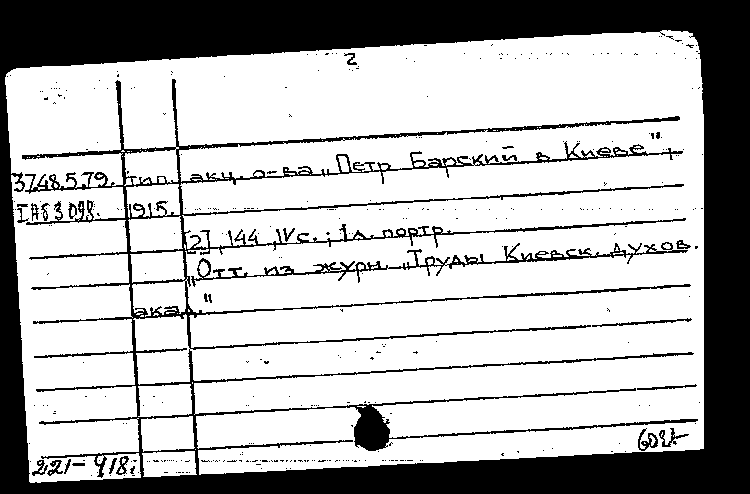 2
3748.5.79. тип. акц. о-ва „Петр Барский в Киеве",
1915.
[2], 144, IV с.; 1 л. портр.
„Отт. из журн. „Труды Киевск. духов.
акад."
221-918: